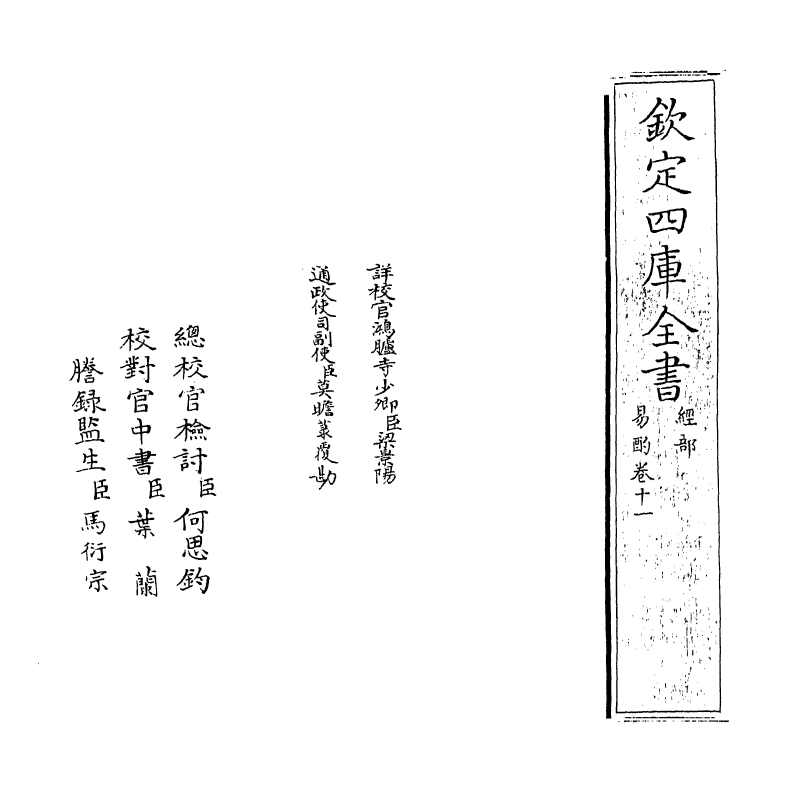 欽定四庫全書
經部
易酌卷十一
詳校官鴻臚寺少卿臣梁景陽
通政使司副使臣莫瞻菉覆勘
總校官檢討臣何思鈞
校對官中書臣葉蘭
謄録監生臣馬衍宗